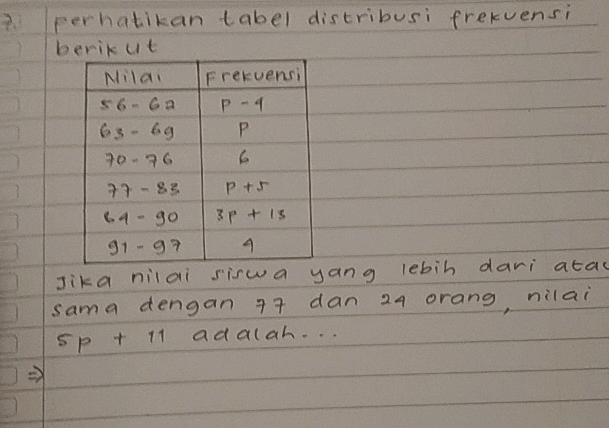 7. perhatikan tabel distribusi frekuensi
berikut
Nilai Frekuensi
56-62 P-4
63-69 P
70-76 6
77-83 P+5
84-90 3P + 13
91-97 4
Jika nilai siswa yang lebih dari atau
sama dengan 77 dan 24 orang, nilai
5p + 11 adalah...
⇒